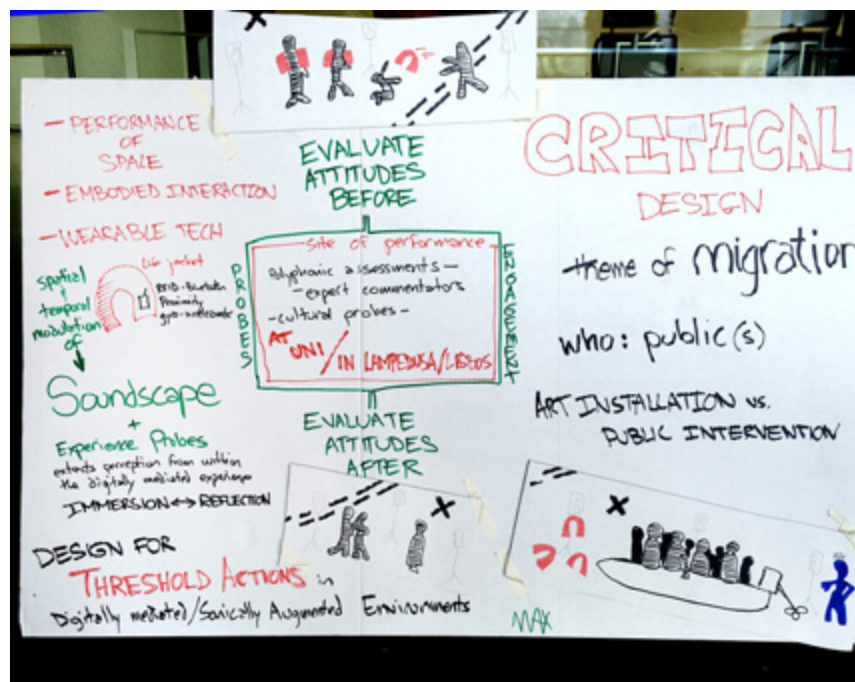 - PERFORMANCE
OF
SPACE
- EMBODIED INTERACTION
- WEARABLE TECH
life jacket
Proximity
spatial
+
temporal
modulation
of
Soundscape
+
Experience Probes
extracts perception from within
the digitally mediated experience
IMMERSION ↔ REFLECTION
DESIGN FOR
THRESHOLD ACTIONS in
Digitally mediated/Sonically Augmented Environments
EVALUATE
ATTITUDES
BEFORE
PROBES
site of performance
Polyphonic assessments -
- expert commentators
- cultural probes -
AT UNI / IN LAMPEDUSA/LESBOS
ENGAGEMENT
EVALUATE
ATTITUDES
AFTER
CRITICAL
DESIGN
theme of migration
who: public(s)
ART INSTALLATION vs.
PUBLIC INTERVENTION
MAX